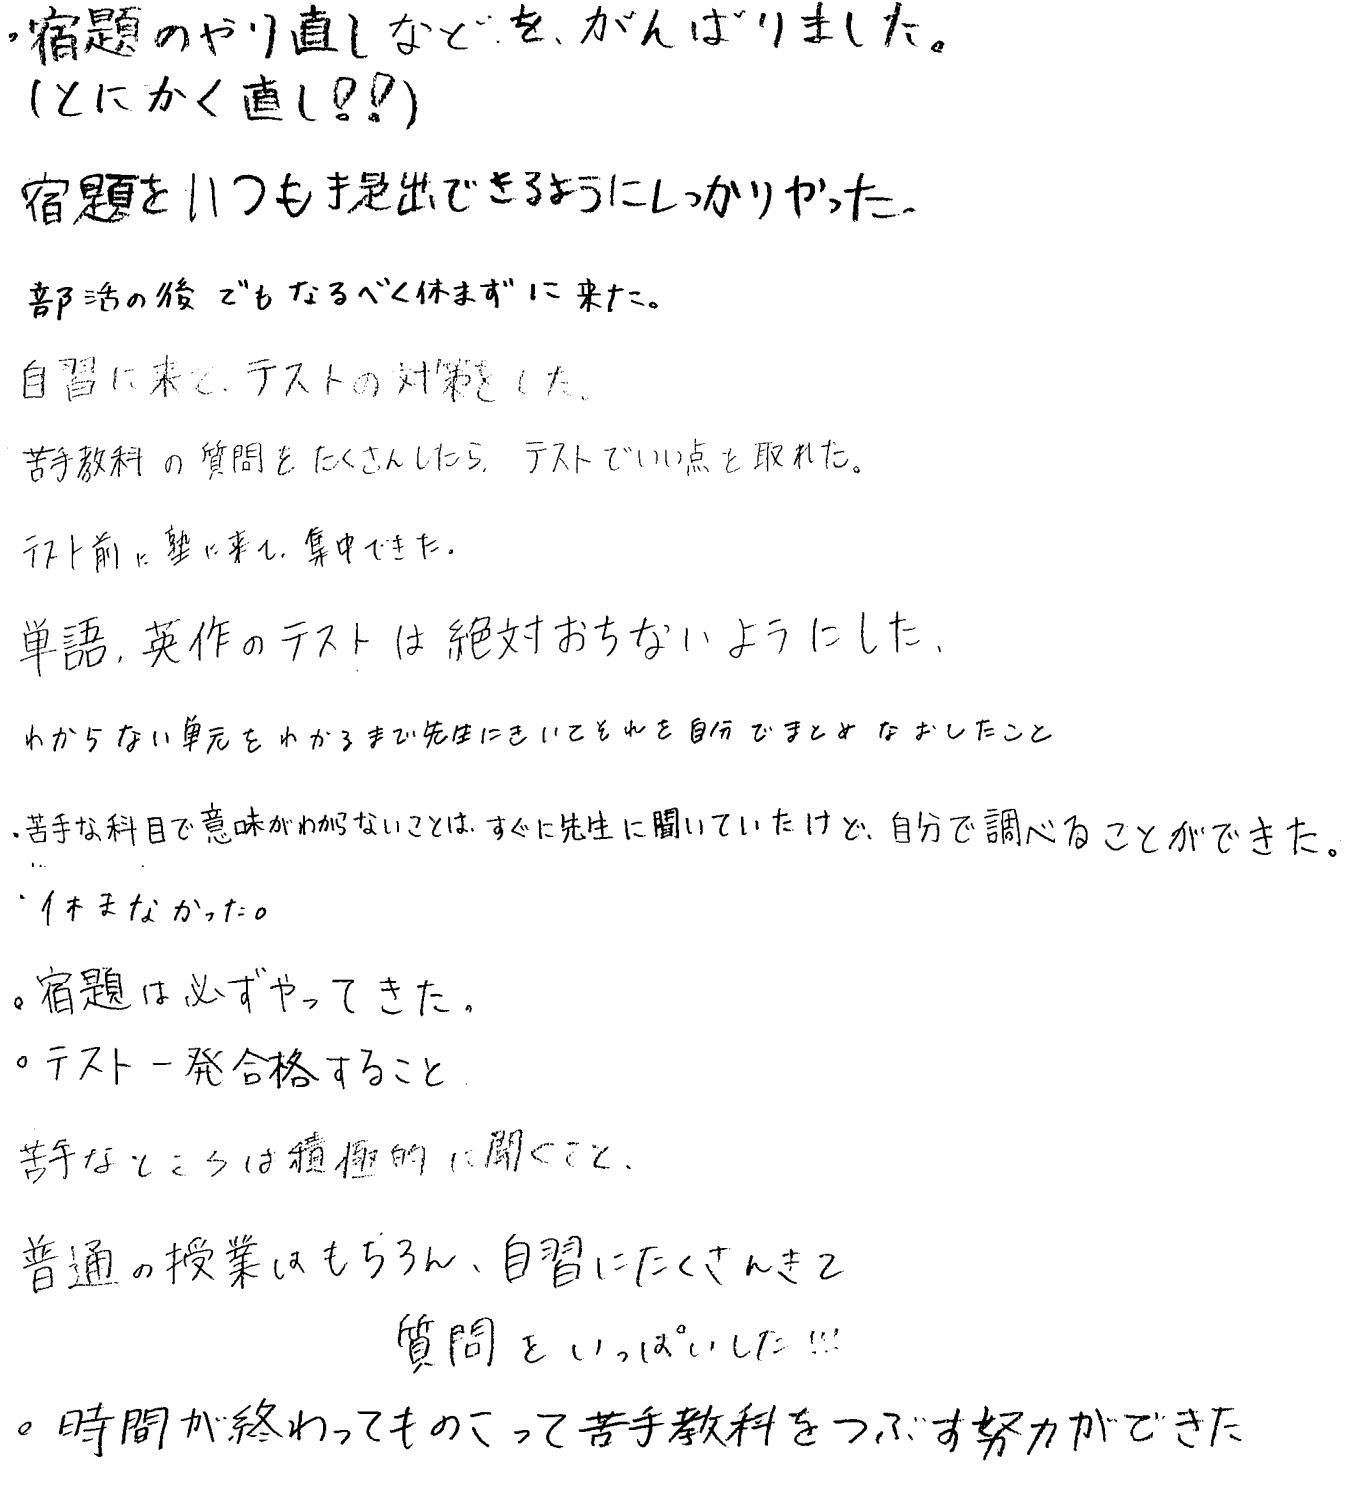 ・宿題のやり直しなどを、がんばりました。
(とにかく直し!!)
宿題をいつも提出できるようにしっかりやった。
部活の後でもなるべく休まずに来た。
自習に来て、テストの対策をした。
苦手教科の質問をたくさんしたら、テストでいい点を取れた。
テスト前に塾に来て、集中できた。
単語、英作のテストは絶対おちないようにした、
わからない単元をわかるまで先生にきいてそれを自分でまとめなおしたこと
・苦手な科目で意味がわからないことは、すぐに先生に聞いていたけど、自分で調べることができた。
・休まなかった。
。宿題は必ずやってきた。
。テスト一発合格すること
苦手なところは積極的に聞くこと、
普通の授業はもちろん、自習にたくさんきて
質問をいっぱいした!!!
。時間が終わってものこって苦手教科をつぶす努力ができた